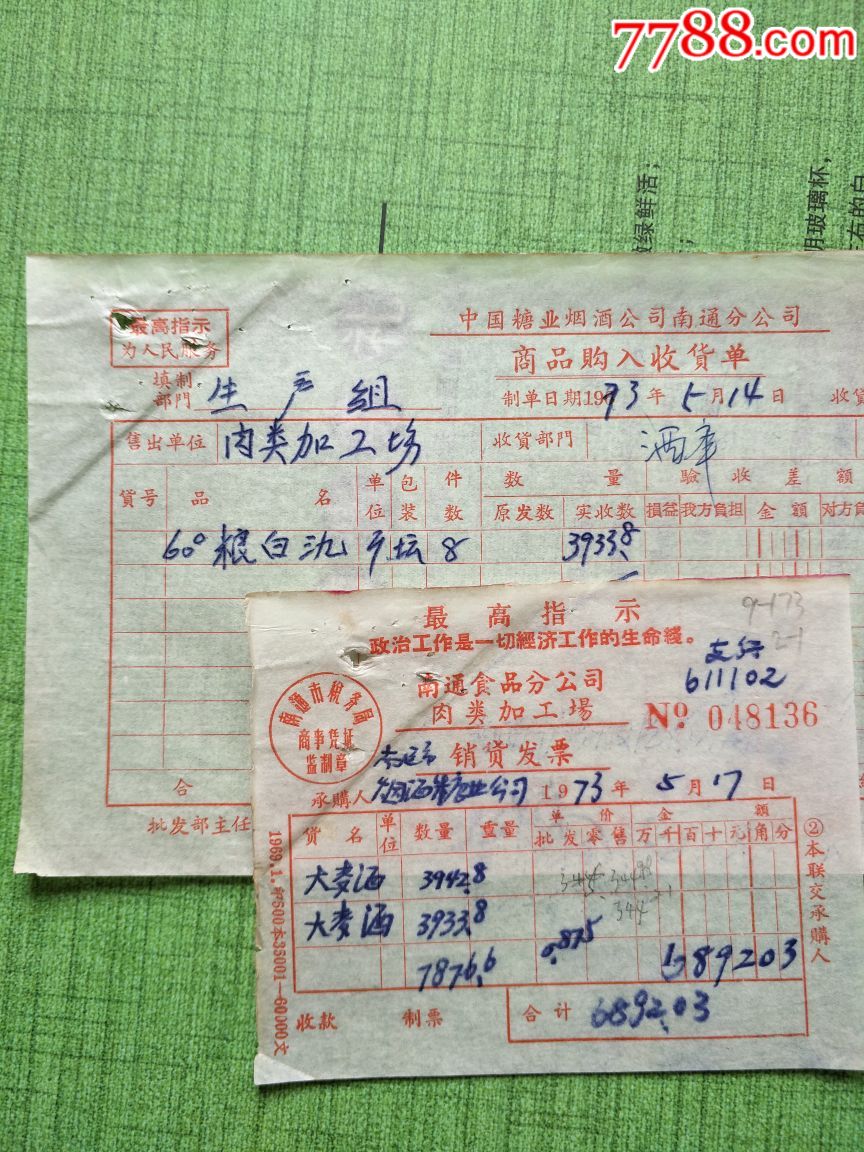 7788.com
致绿鲜活;
明玻璃杯,
左右的白
中国糖业烟酒公司南通分公司
最高指示
为人民服务
商品购入收货单
填制
部門 生产组
制单日期1973年5月14日 收货
售出单位 肉类加工场 收货部門 酒库
貨号 品 名 单位 包装 件数 数 量 驗 收 差 額
原发数 实收数 损益 我方負担 金額 对方負
60° 粮白氿 斤 坛 8 3933.8
合
批发部主任
最高指示
政治工作是一切經济工作的生命綫。
9-173
2-1
支行
611102
南通食品分公司
肉类加工場
№ 048136
南通市稅务局
商事凭証
监制章
南通市
销货发票
承購人 烟酒糖业公司 1973年5月17日
货名 单位 数量 重量 单价 金額
批发 零售 万千百十元角分
大麦酒 3942.8
大麦酒 3933.8
344
7876.6 0.875 689203
收款 制票 合計 6892.03
②本联交承購人
1969.1.
500本35001—60000文